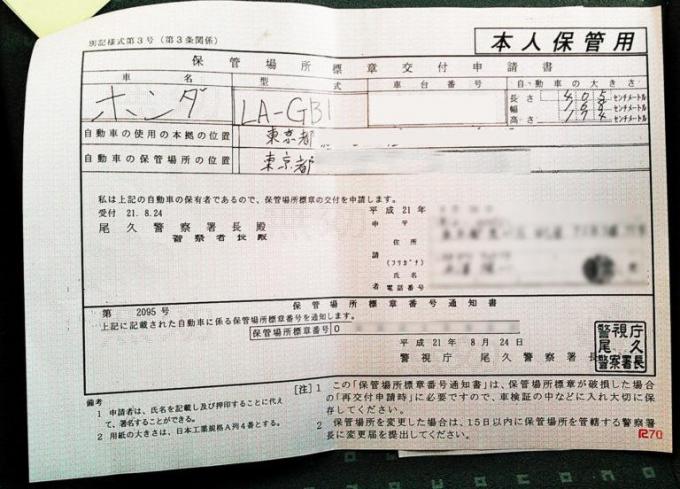 別記様式第3号(第3条関係)
本人保管用
保管場所標章交付申請書
車名 型式 車台番号 自動車の大きさ
ホンダ LA-GB1 長さ 405 センチメートル
幅 168 センチメートル
高さ 174 センチメートル
自動車の使用の本拠の位置 東京都
自動車の保管場所の位置 東京都
私は上記の自動車の保有者であるので、保管場所標章の交付を申請します。
受付 21.8.24 平成21年
尾久警察署長殿
警察署長殿
申請者
住所
(フリガナ)
氏名
電話番号
第 2095 号 保管場所標章番号通知書
上記に記載された自動車に係る保管場所標章番号を通知します。
保管場所標章番号 0
平成21年8月24日
警視庁 尾久警察署長
警視庁
尾久
警察署長
備考
1 申請者は、氏名を記載し及び押印することに代え
て、署名することができる。
2 用紙の大きさは、日本工業規格A列4番とする。
[注] 1 この「保管場所標章番号通知書」は、保管場所標章が破損した場合
の「再交付申請時」に必要ですので、車検証の中などに入れ大切に保
存してください。
2 保管場所を変更した場合は、15日以内に保管場所を管轄する警察署
長に変更届を提出してください。
R70